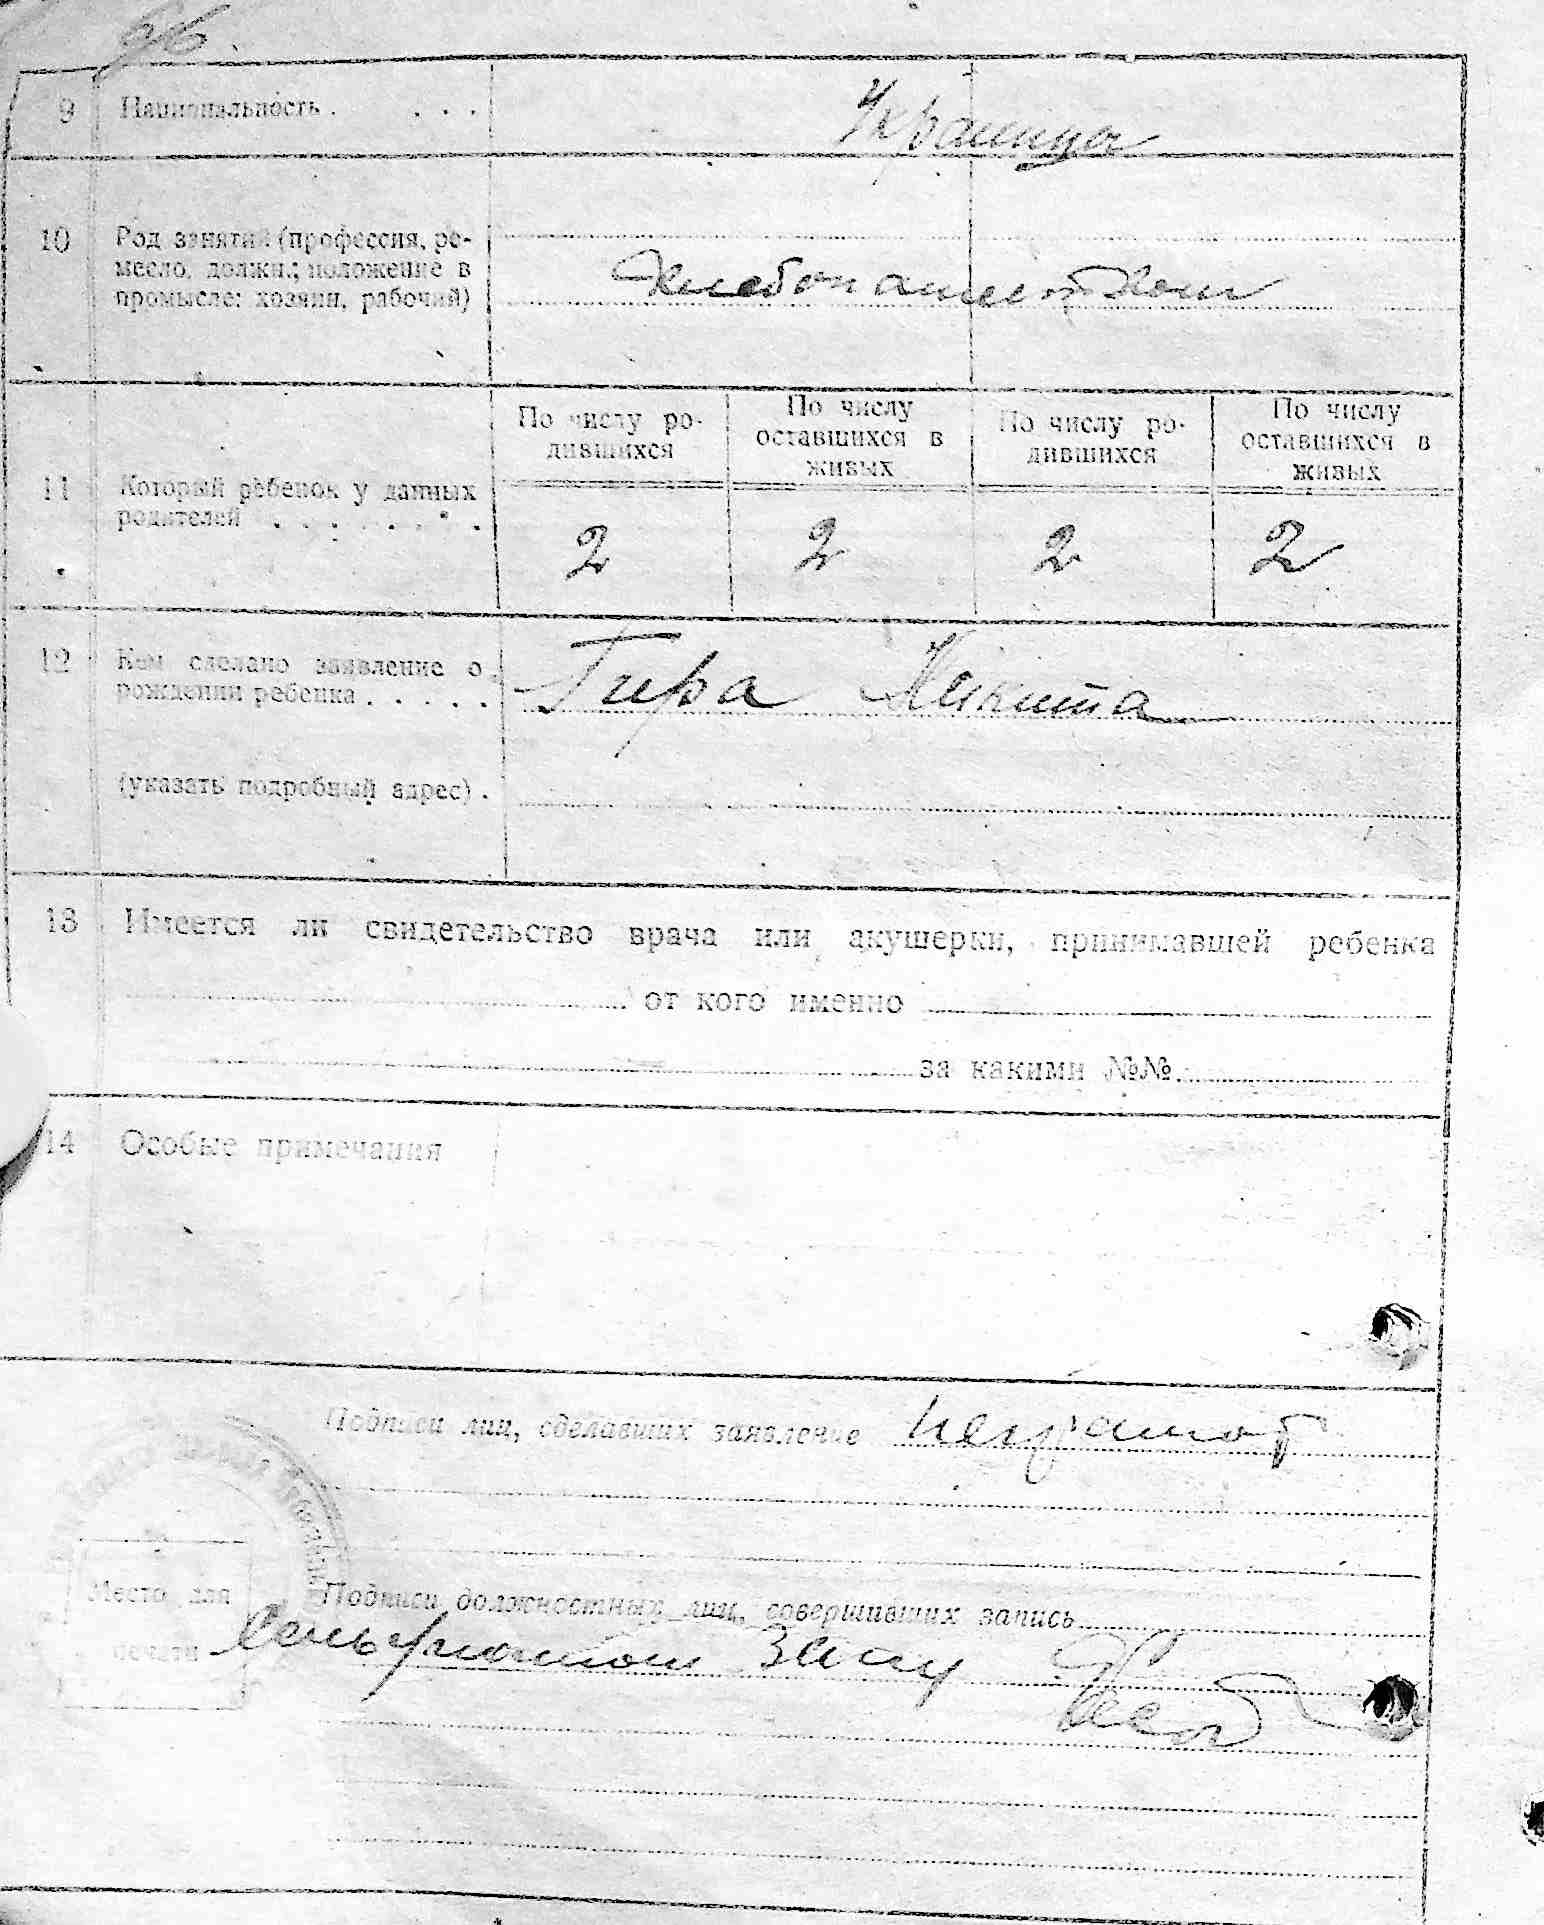 96.
9 Национальность . . . . Украинцы
10 Род занятий (профессия, ре-
месло, должн.; положение в
промысле: хозяин, рабочий) Хлебопашеством
11 Который ребенок у данных
родителей . . . . . . . .
По числу ро-
дившихся
По числу
оставшихся в
живых
По числу ро-
дившихся
По числу
оставшихся в
живых
2 2 2 2
12 Кем сделано заявление о
рождении ребенка . . . . . Гира Никита
(указать подробный адрес) .
13 Имеется ли свидетельство врача или акушерки, принимавшей ребенка
от кого именно
за какими №№.
14 Особые примечания
Подписи лиц, сделавших заявление неграмот
Место для
печати
Подписи должностных лиц, совершивших запись